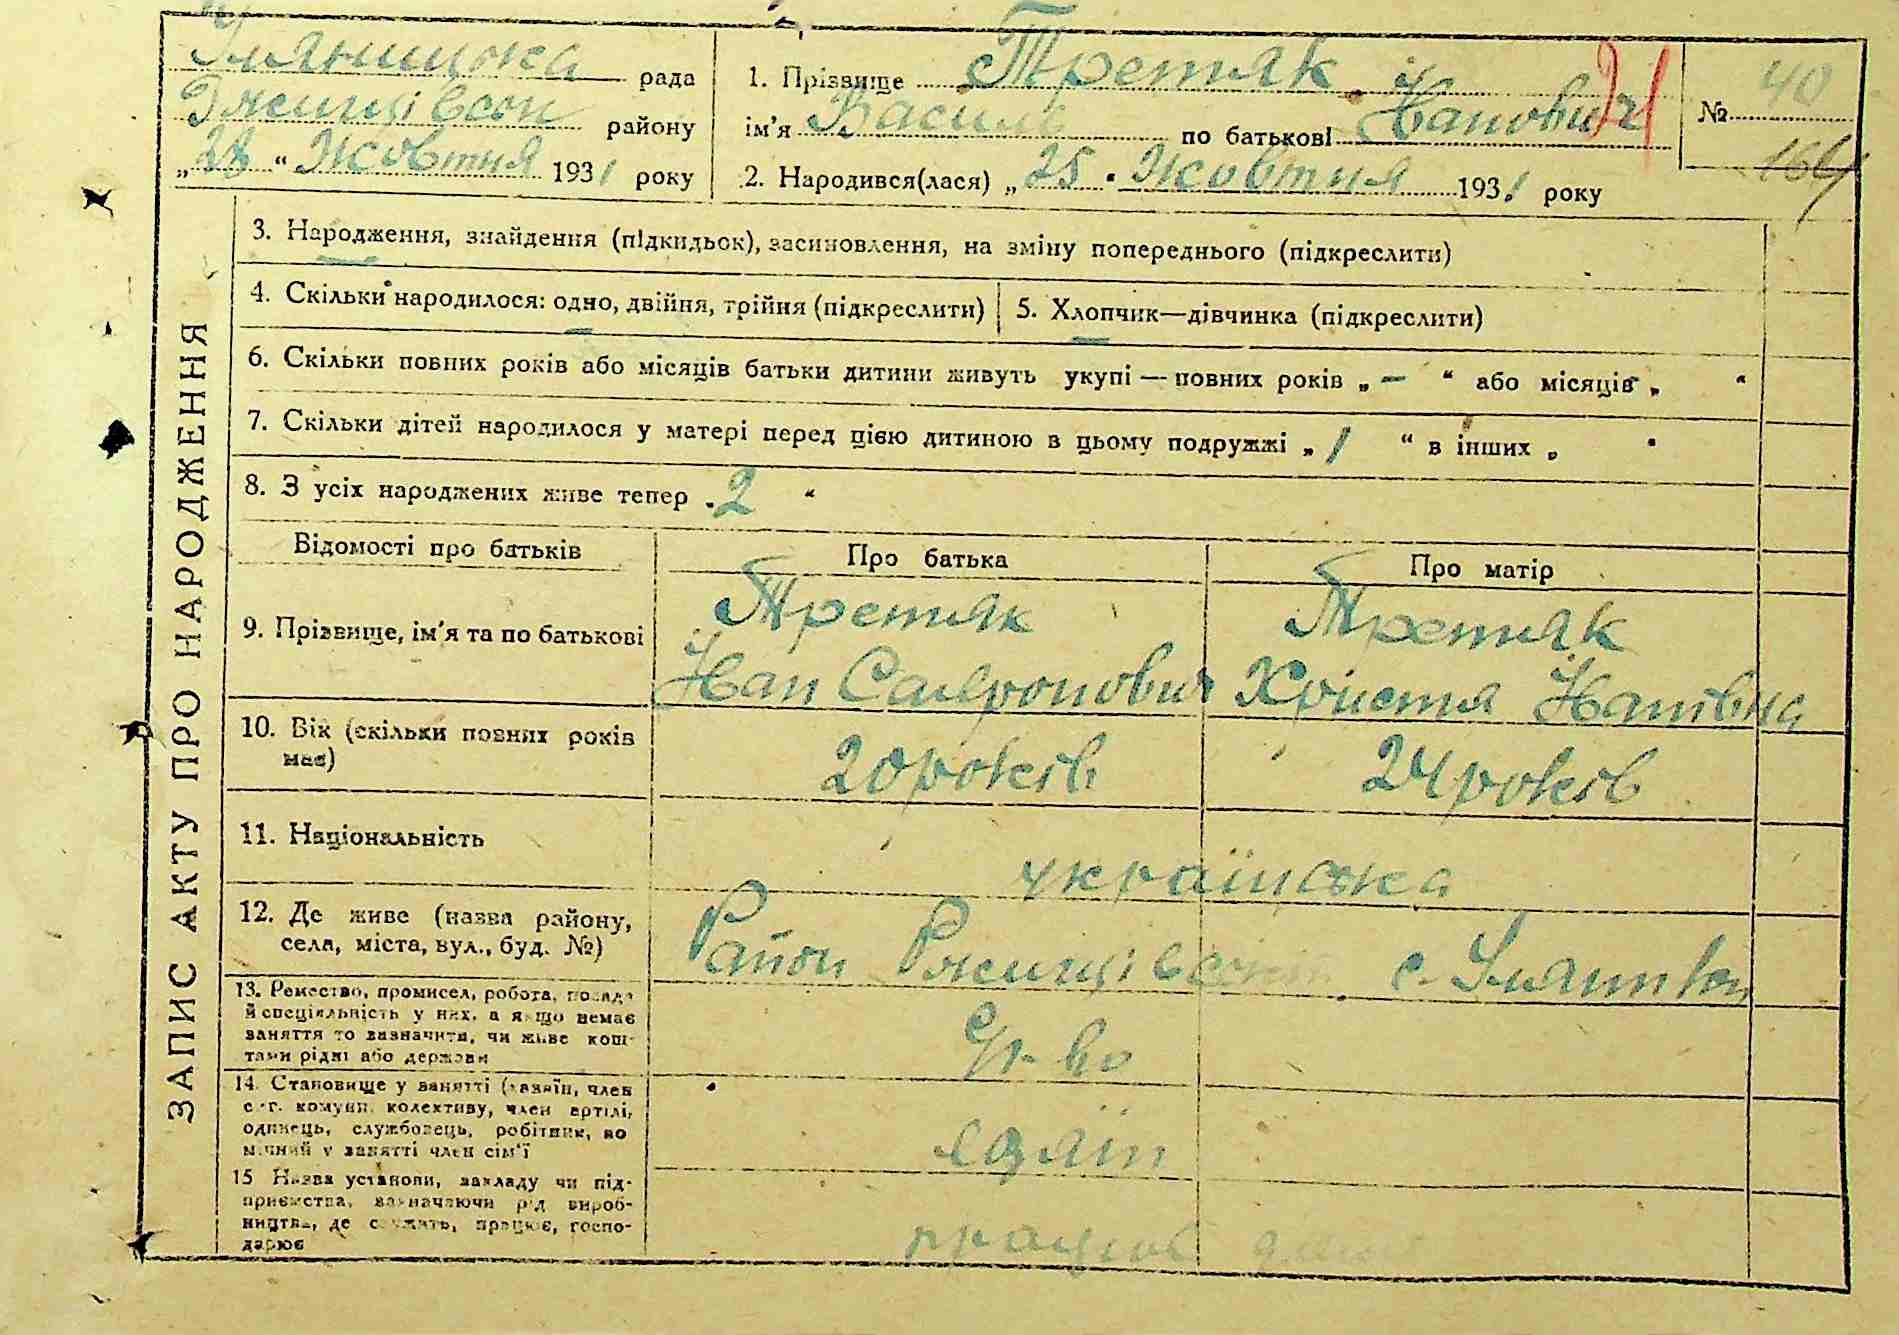 Уляницька рада
Ржищівськ району
„28“ Жовтня 1931 року
1. Прізвище Третяк
ім'я Василь по батькові Йванович
2. Народився(лася) „25“ Жовтня 1931 року
№ 40
164
21
ЗАПИС АКТУ ПРО НАРОДЖЕННЯ
3. Народження, знайдення (підкидьок), засиновлення, на зміну попереднього (підкреслити)
4. Скільки народилося: одно, двійня, трійня (підкреслити)
5. Хлопчик—дівчинка (підкреслити)
6. Скільки повних років або місяців батьки дитини живуть укупі — повних років „ — “ або місяців „ “
7. Скільки дітей народилося у матері перед цією дитиною в цьому подружжі „ 1 “ в інших „ “
8. З усіх народжених живе тепер „ 2 “
Відомості про батьків
Про батька
Про матір
9. Прізвище, ім'я та по батькові
Третяк
Йван Сафронович
Третяк
Христя Йванівна
10. Вік (скільки повних років
має)
20 років
24 років
11. Національність
українська
12. Де живе (назва району,
села, міста, вул., буд. №)
Район Ржищівськ с.
13. Ремество, промисел, робота, посада
й спеціяльність у них, а якщо немає
заняття то зазначити, чи живе кош-
тами рідні або держави
14. Становище у занятті (хазяїн, член
с.-г. комуни, колективу, член артілі,
одинець, службовець, робітник, по
мічний у занятті член сім'ї
15 Назва установи, закладу чи під-
приємства, зазначаючи рід вироб-
ництва, де служить, працює, госпо-
дарює
працює